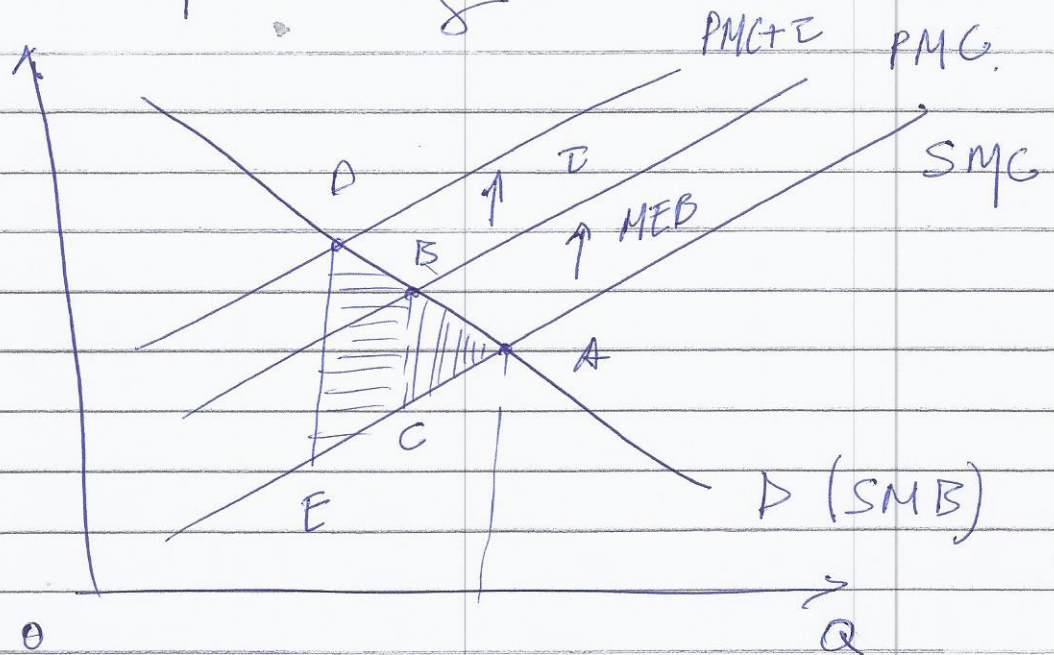 PMC+τ
PMC.
SMC
τ
D
MEB
B
A
C
E
D (SMB)
O
Q